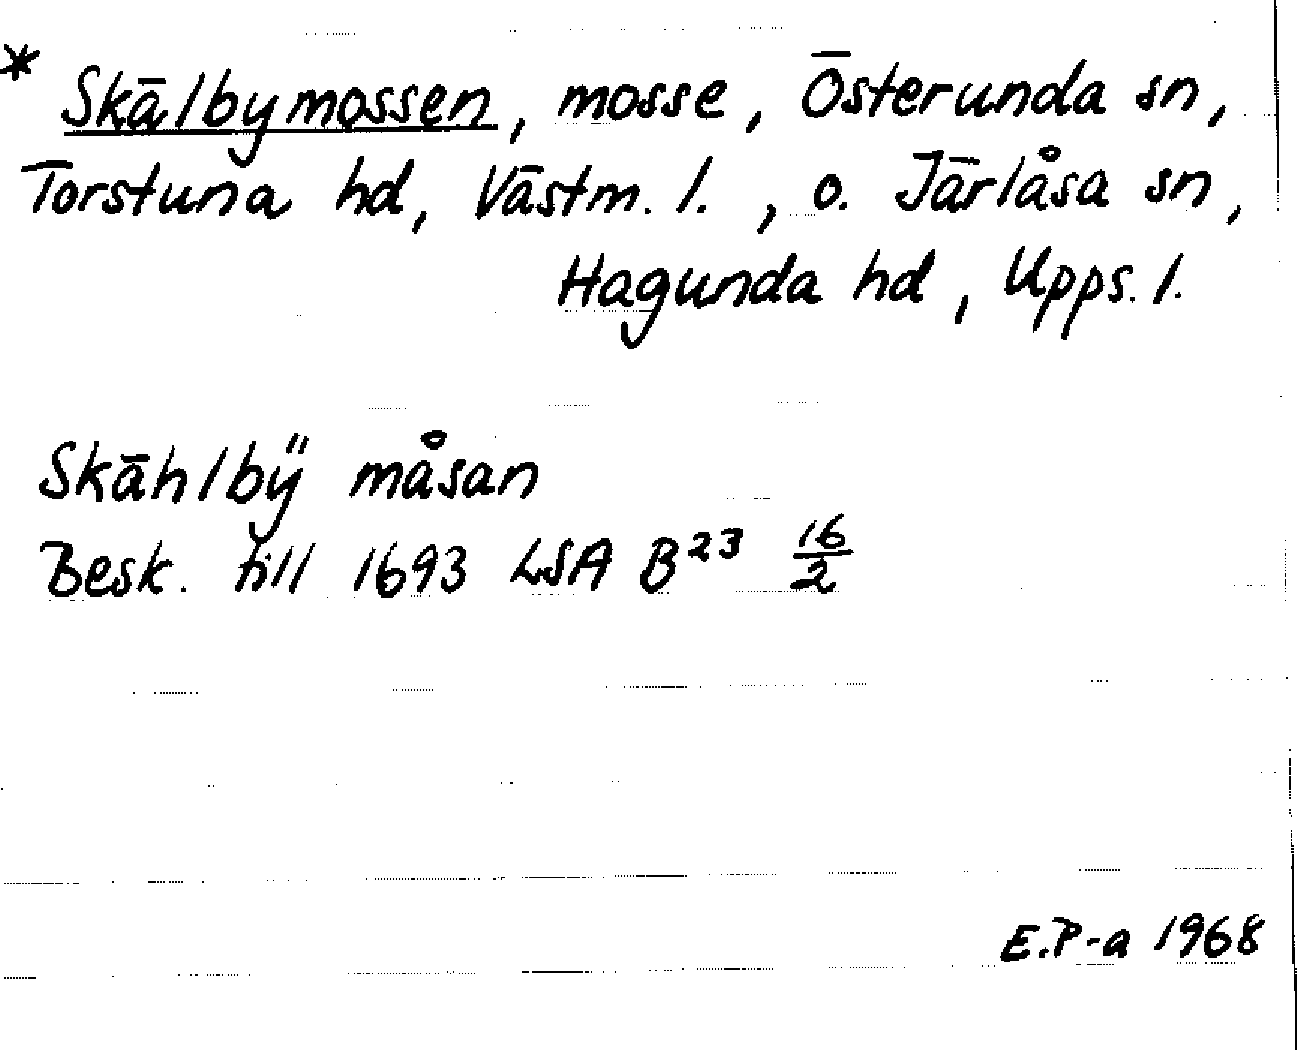 * Skälbymossen, mosse, Österunda sn,
Torstuna hd, Västm. l. , o. Järlåsa sn,
Hagunda hd, Upps. l.
Skählbÿ måsan
Besk. till 1693 LSA B²³ 16/2
E.P-a 1968